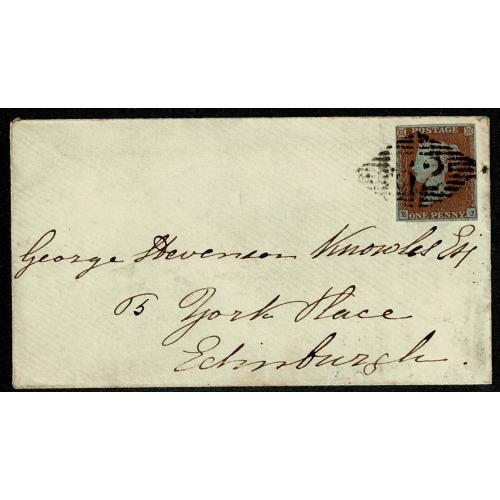 POSTAGE
12
ONE PENNY
George Stevenson Knowles Esq
5 York Place
Edinburgh.